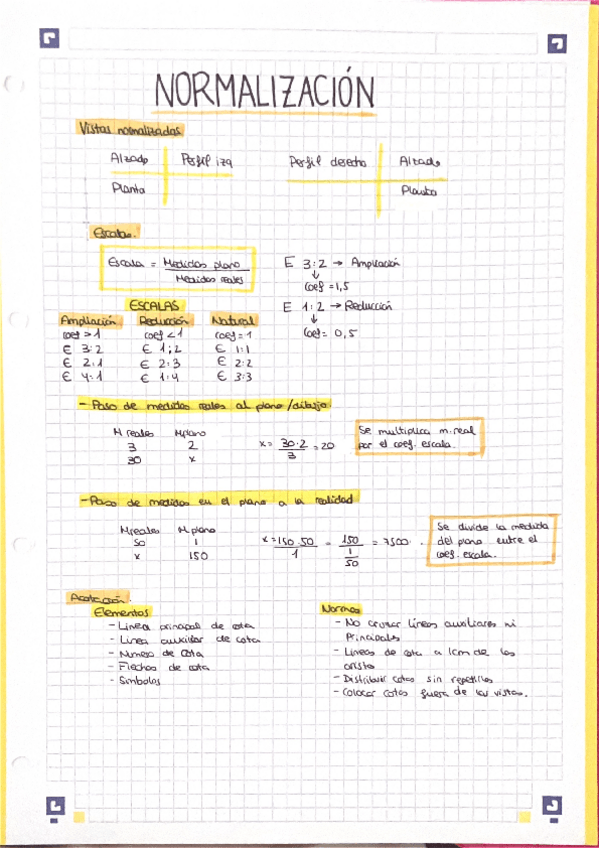 NORMALIZACIÓN
Vistas normalizadas
Alzado Perfil izq
Planta
Perfil derecho Alzado
Planta
Escalas.
Escala = Medidas plano
Medidas reales
E 3:2 → Ampliación
↓
Coef = 1,5
E 1:2 → Reducción
↓
Coef = 0,5
ESCALAS
Ampliación Reducción Natural
coef > 1 coef < 1 coef = 1
E 3:2 E 1:2 E 1:1
E 2:1 E 2:3 E 2:2
E 4:1 E 1:4 E 3:3
- Paso de medidas reales al plano/dibujo.
M reales M plano
3 2
30 x
x = 30·2 = 20
3
Se multiplica m. real
por el coef. escala.
- Paso de medidas en el plano a la realidad
M reales M plano
50 1
x 150
x = 150·50 = 150 = 7500.
1 1
50
Se divide la medida
del plano entre el
coef. escala.
Acotación.
Elementos
- Linea principal de cota
- Linea auxiliar de cota
- Numero de cota
- Flechas de cota
- Simbolos
Normas
- No cruzar líneas auxiliares ni
Principales
- Lineas de cota a 1cm de las
arista
- Distribuir cotas sin repetirlas
- Colocar cotas fuera de las vistas.